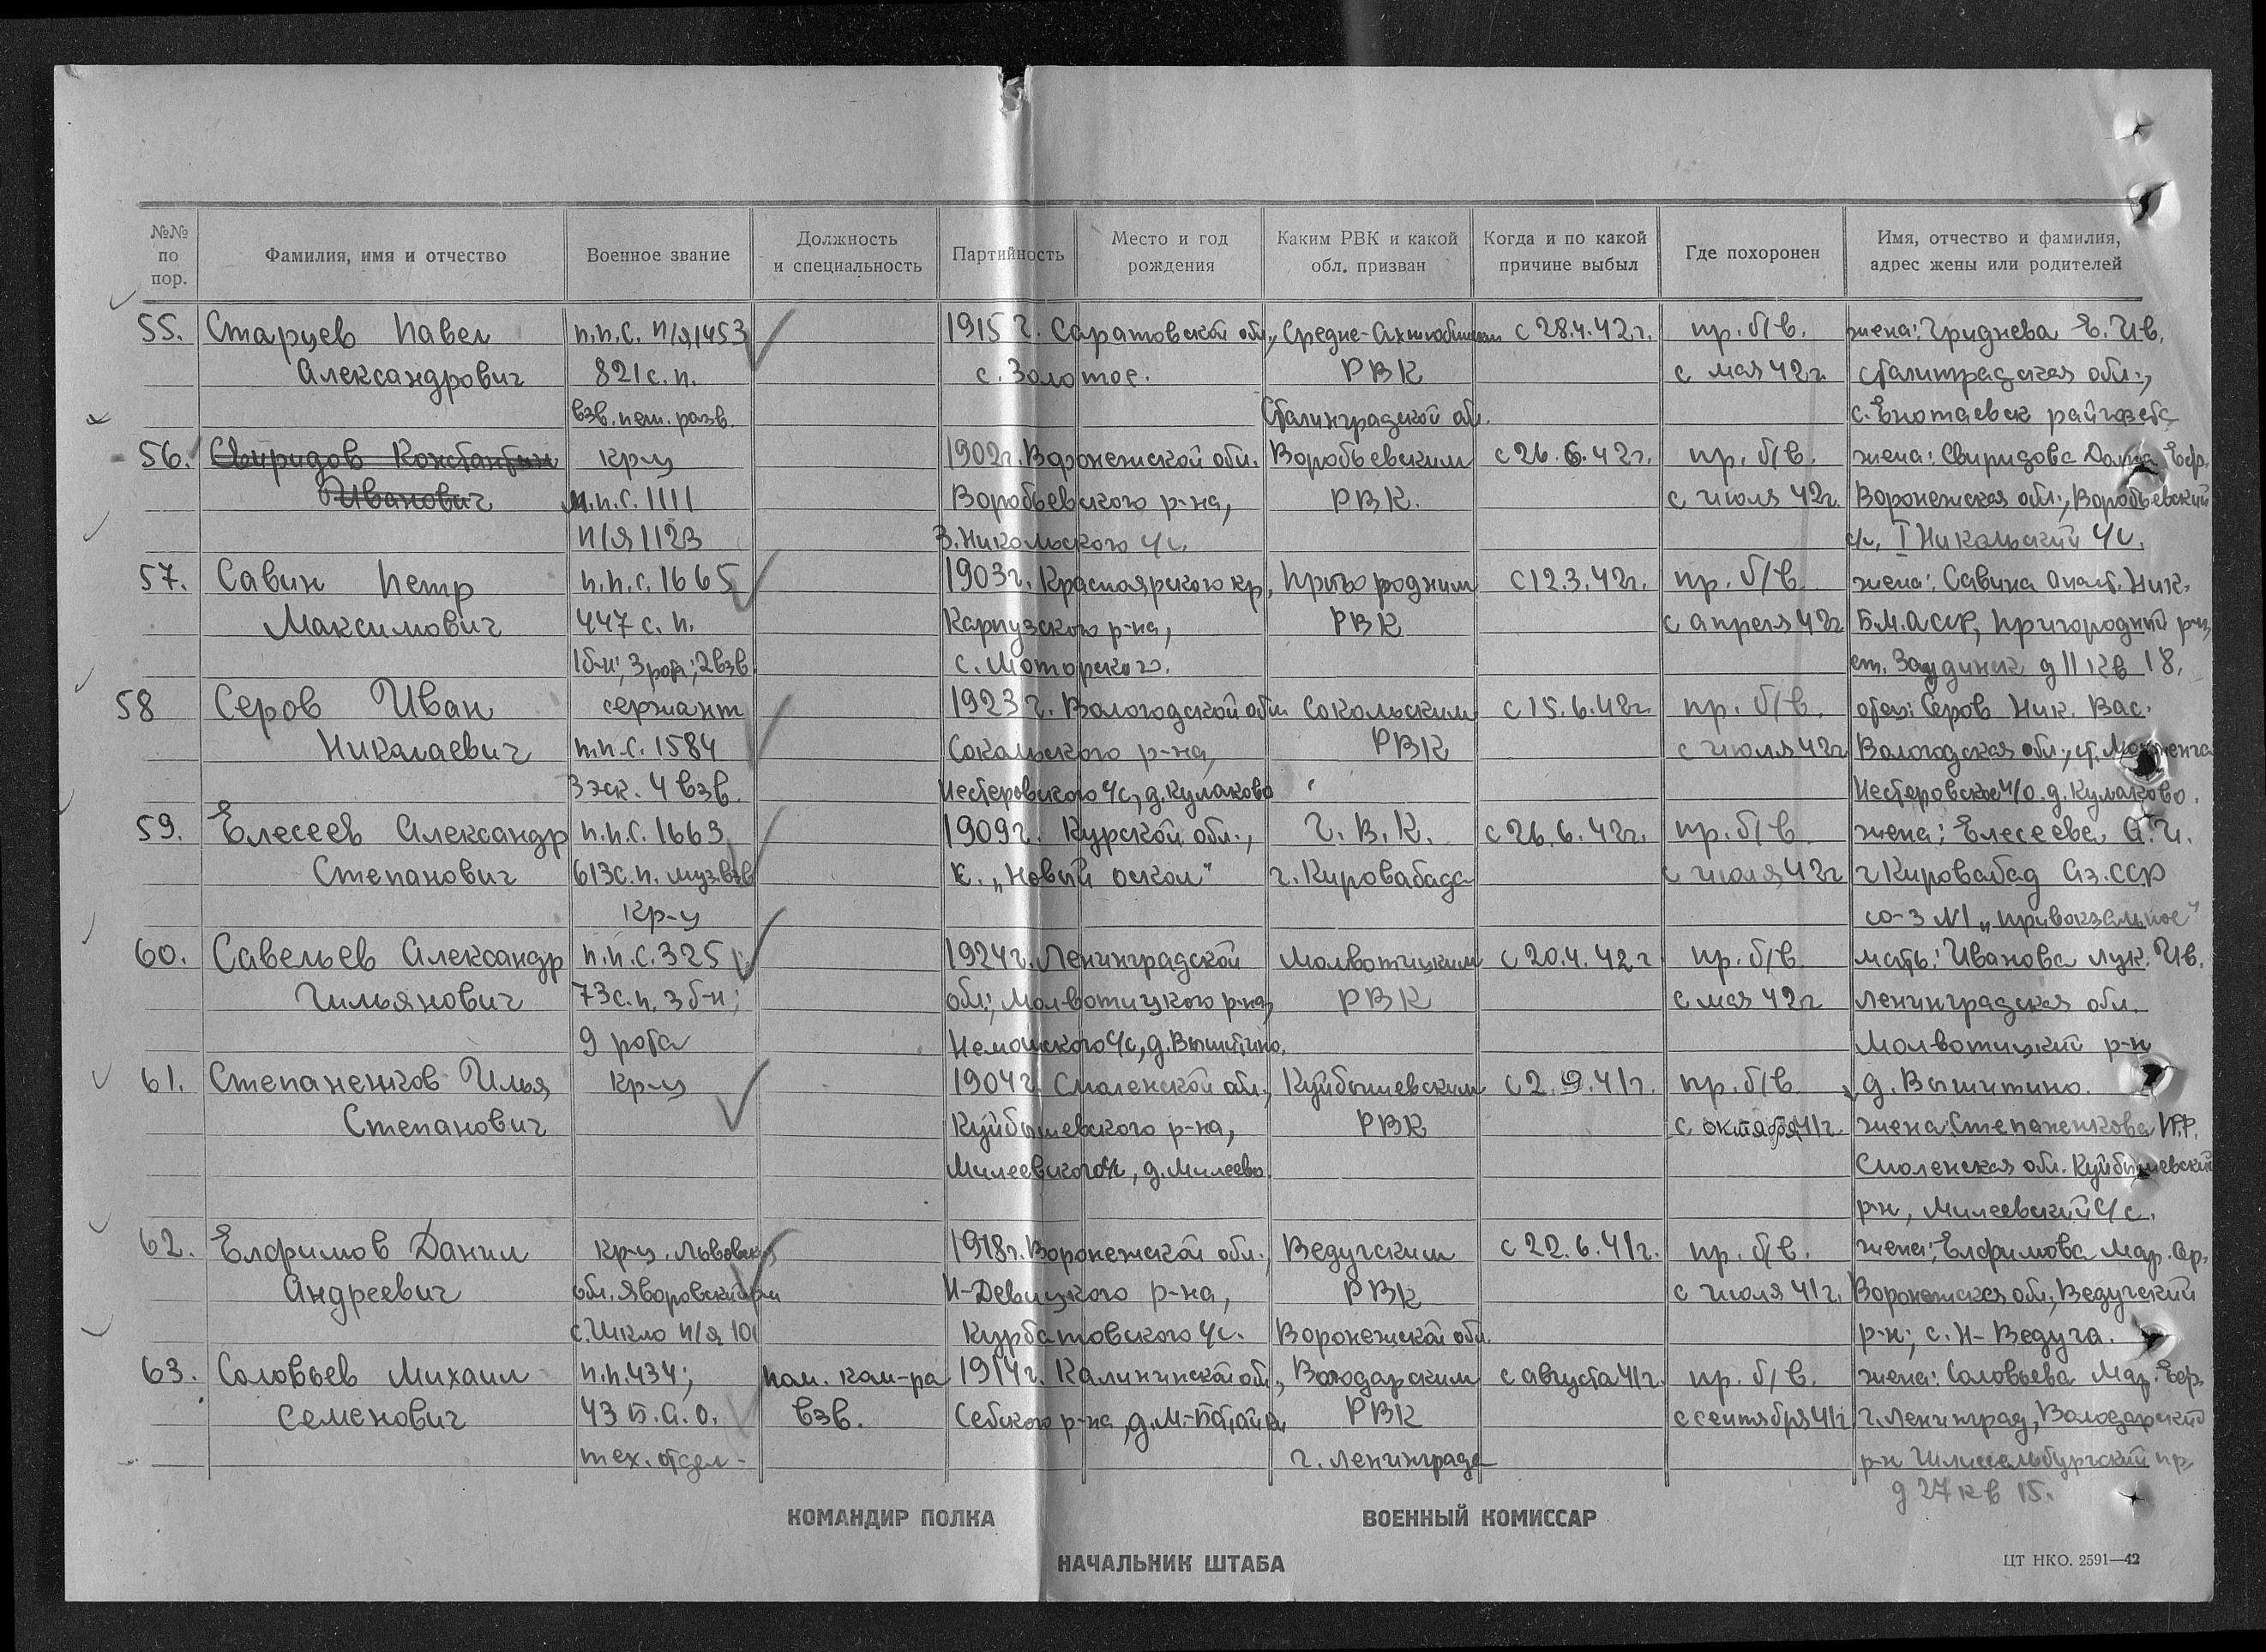 №№ по пор.
Фамилия, имя и отчество
Военное звание
Должность и специальность
Партийность
Место и год рождения
Каким РВК и какой обл. призван
Когда и по какой причине выбыл
Где похоронен
Имя, отчество и фамилия, адрес жены или родителей
55. Старцев Павел п.п.с. п/я 1453 1915 г. Саратовской обл., Средне-Ахтюбинским с 28.4.42г. пр. б/в. жена: Гриднева Е. Ив.
Александрович 821 с.п. с. Золотое. РВК с мая 42г. Сталинградская обл.,
взв. пеш. разв. Сталинградской обл. с. Енотаевск райгазета
56. Свиридов Константин кр-ц 1902г. Воронежской обл. Воробьевским с 26.6.42г. пр. б/в. жена: Свиридова Еф.
Иванович п.п.с. 1111 Воробьевского р-на, РВК. с июля 42г. Воронежская обл., Воробьевский
п/я 1123 3. Никольского с/с. I Никольский с/с.
57. Савин Петр п.п.с. 1665 1903г. Красноярского кр., Пригородним с 12.3.42г. пр. б/в. жена: Савина Анаст. Ник.
Максимович 447 с.п. Карпузского р-на, РВК с апреля 42г Б.М.АССР, Пригородний р-н,
1 б-н; 3 рота; 2 взв. с. Моторского. ст. Заудинск д 11 кв 18.
58 Серов Иван сержант 1923 г. Вологодской обл. Сокольским с 15.6.42г. пр. б/в. отец: Серов Ник. Вас.
Николаевич п.п.с. 1584 Сокольского р-на, РВК с июля 42г Вологодская обл., ст.
3 эск. 4 взв. Нестеровского с/с, д. Кулаково Нестеровское п/о. д. Кулаково.
59. Елесеев Александр п.п.с. 1663 1909г. Курской обл., Г.В.К. с 26.6.42г. пр. б/в жена: Елесеева А. И.
Степанович 613 с.п. муз. взв к. „Новый оскол" г. Кировабада с июля 42г г Кировабад Аз.ССР
кр-ц со-з №1 „привокзальное"
60. Савельев Александр п.п.с. 325 1924г. Ленинградской Молвотицким с 20.4.42г пр. б/в. мать: Иванова Лук. Ив.
Гильянович 73 с.п. 3 б-н; обл., Молвотицкого р-на, РВК с мая 42г Ленинградская обл.
9 рота с/с, д. Вышитино. Молвотицкий р-н
61. Степаненков Илья кр-ц 1904г. Смоленской обл., Куйбышевским с 2.9.41г. пр. б/в д. Вышитино.
Степанович Куйбышевского р-на, РВК с октября 41г. жена: Степаненкова
Милеевского с/с, д. Милеево. Смоленская обл. Куйбышевский
р-н, Милеевский с/с.
62. Елфимов Данил кр-ц. Львовская 1918г. Воронежской обл., Ведугским с 22.6.41г. пр. б/в. жена: Елфимова Мар. Ар.
Андреевич обл. Яворовский р-н Н-Девицкого р-на, РВК с июля 41г. Воронежская обл., Ведугский
с. Шкло п/я 10 Курбатовского с/с. Воронежской обл. р-н; с. Н-Ведуга.
63. Соловьев Михаил п.п. 434; пом. ком-ра 1914г. Калининской обл., Володарским с августа 41г. пр. б/в. жена: Соловьева Мар. Еф.
Семенович 43 б.а.о. взв. р-на, РВК с сентября 41г. г. Ленинград, Володарский
тех. отдел- г. Ленинграда р-н Шлиссельбургский пр.
д 27 кв 15.
КОМАНДИР ПОЛКА
ВОЕННЫЙ КОМИССАР
НАЧАЛЬНИК ШТАБА
ЦТ НКО. 2591—42